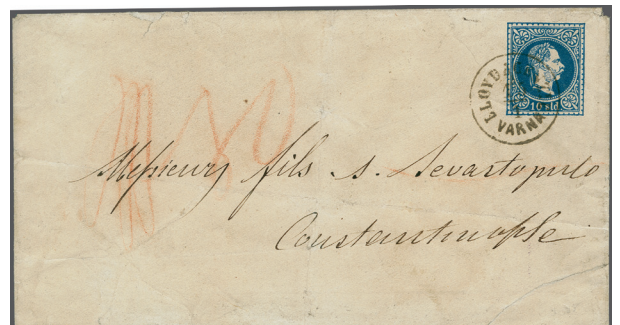 LLOYD
VARNA
10 sld
Messieurs fils s. Sevastopulo
Constantinople